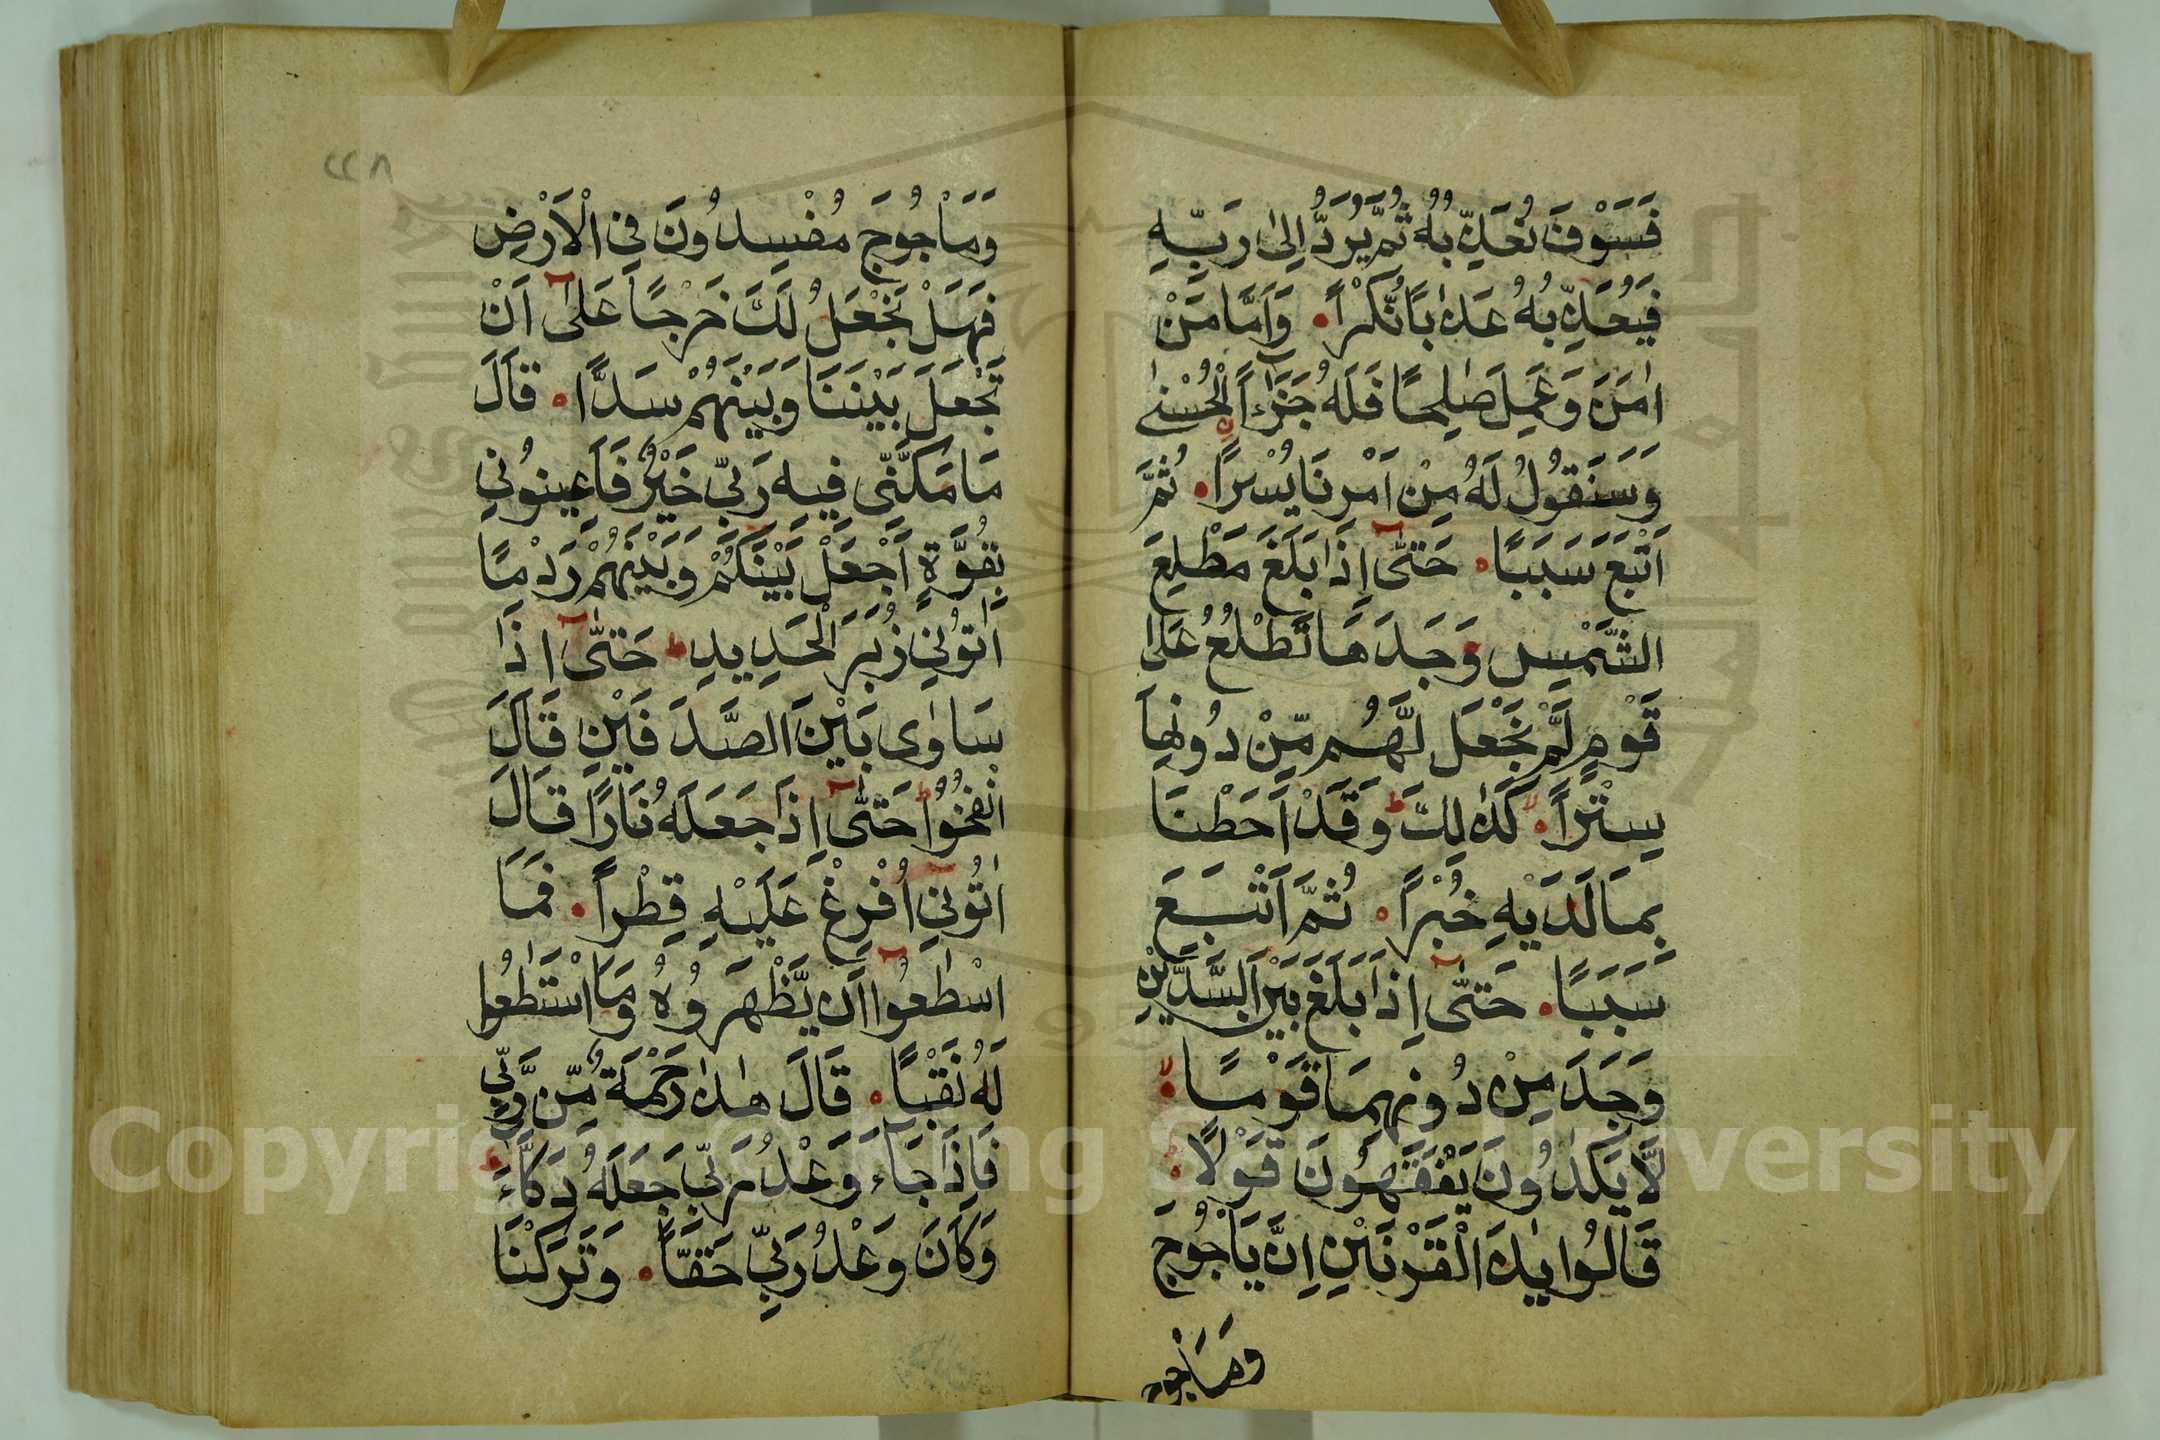 فَسَوْفَ نُعَذِّبُهُ ثُمَّ يُرَدُّ اِلٰى رَبِّهٖ
فَيُعَذِّبُهُ عَذَابًا نُّكْرًا وَاَمَّا مَنْ
اٰمَنَ وَعَمِلَ صٰلِحًا فَلَهُ جَزَآءً الْحُسْنٰى
وَسَنَقُولُ لَهُ مِنْ اَمْرِنَا يُسْرًا ثُمَّ
اَتْبَعَ سَبَبًا حَتّٰى اِذَا بَلَغَ مَطْلِعَ
الشَّمْسِ وَجَدَهَا تَطْلُعُ عَلٰى
قَوْمٍ لَّمْ نَجْعَل لَّهُم مِّنْ دُونِهَا
سِتْرًا كَذٰلِكَ وَقَدْ اَحَطْنَا
بِمَا لَدَيْهِ خُبْرًا ثُمَّ اَتْبَعَ
سَبَبًا حَتّٰى اِذَا بَلَغَ بَيْنَ السَّدَّيْنِ
وَجَدَ مِنْ دُونِهِمَا قَوْمًا
لَّا يَكَادُونَ يَفْقَهُونَ قَوْلًا
قَالُوا يٰذَ الْقَرْنَيْنِ اِنَّ يَاْجُوجَ
وَمَاْجُوجَ
٢٢٨
وَمَاْجُوجَ مُفْسِدُونَ فِى الْاَرْضِ
فَهَلْ نَجْعَلُ لَكَ خَرْجًا عَلٰٓى اَنْ
تَجْعَلَ بَيْنَنَا وَبَيْنَهُمْ سَدًّا قَالَ
مَا مَكَّنِّى فِيهِ رَبِّى خَيْرٌ فَاَعِينُونِى
بِقُوَّةٍ اَجْعَلْ بَيْنَكُمْ وَبَيْنَهُمْ رَدْمًا
اٰتُونِى زُبَرَ الْحَدِيدِ حَتّٰٓى اِذَا
سَاوٰى بَيْنَ الصَّدَفَيْنِ قَالَ
انْفُخُوا حَتّٰٓى اِذَا جَعَلَهُ نَارًا قَالَ
اٰتُونِىٓ اُفْرِغْ عَلَيْهِ قِطْرًا فَمَا
اسْطٰعُوٓا اَن يَّظْهَرُوهُ وَمَا اسْتَطٰعُوا
لَهُ نَقْبًا قَالَ هٰذَا رَحْمَةٌ مِّن رَّبِّى
فَاِذَا جَآءَ وَعْدُ رَبِّى جَعَلَهُ دَكَّآءَ
وَكَانَ وَعْدُ رَبِّى حَقًّا وَتَرَكْنَا
Copyright © King Saud University
King Saud University
جامعة الملك سعود